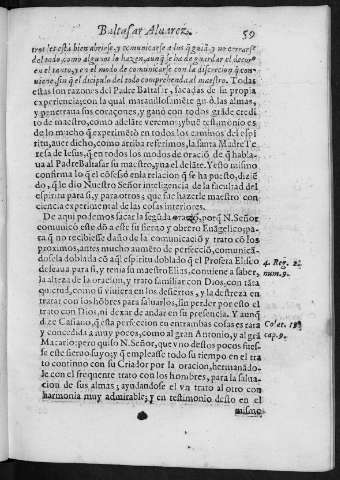 Baltasar Aluarez.
59
tros les està bien abrirse, y comunicarse a los q̃ guiã, y no cerrarse
del todo, como algunos lo hazen, aunq̃ se ha de guardar el decoro
en el tanto, y en el modo de comunicarse con la discrecion q̃ con-
uiene, sin q̃ el dicipulo del todo comprehenda al maestro. Todas
estas son razones del Padre Baltasar, sacadas de su propia
experiencia; con la qual
y penetraua sus coraçones, y ganò con todos grãde credi-
to de maestro, como adelãte veremos; y buẽ testimonio es
de lo mucho q̃ experimẽtò en todos los caminos del espi
ritu, auer dicho, como arriba referimos, la santa Madre Te
resa de Iesus, q̃ en todos los modos de oraciõ de q̃ habla-
ua al Padre Baltasar su maestro, yua el delãte. Y esto mismo
confirma lo q̃ el cõfesso en la relacion q̃ se ha puesto, diciẽ
do, q̃ le dio Nuestro Señor inteligencia de la facultad del
espiritu para si, y para otros; que fue hazerle maestro con
ciencia experimental de las cosas interiores.
De aqui podemos sacar la segũda razõ, porq̃ N. Señor
comunicò este dõ a este su sieruo y obrero Euãgelico; pa-
ra q̃ no recibiesse daño de la comunicaciõ y trato cõ los
proximos, antes mucho aumẽto de perfecciõ, comunicã-
dosela doblada cõ aql̃ espiritu doblado q̃ el Profeta Eliseo
desseaua para si, y tenia su maestro Elias, conuiene a saber,
la alteza de la oracion, y trato familiar con Dios, con tãta
quietud, como si viuiera en los desiertos, y la destreza en
tratar con los hõbres para saluarlos, sin perder por esto el
trato con Dios, ni dexar de andar en su presencia. Y aunq̃
dize Casiano, q̃ esta perfeccion en entrambas cosas es rara
y concedida a muy pocos, como al gran Antonio, y al grã
Macario: pero quiso N. Señor, que vno destos pocos fues-
se este sieruo suyo; y que empleasse todo su tiempo en el tra
to continuo con su Criador por la oracion, hermanãdo-
le con el frequente trato con los hombres, para la salua-
cion de sus almas; ayudandose el vn trato al otro con
harmonia muy admirable; y en testimonio desto en el
mismo
4. Reg. 2.
num. 9.
Colat. 19.
cap. 9.